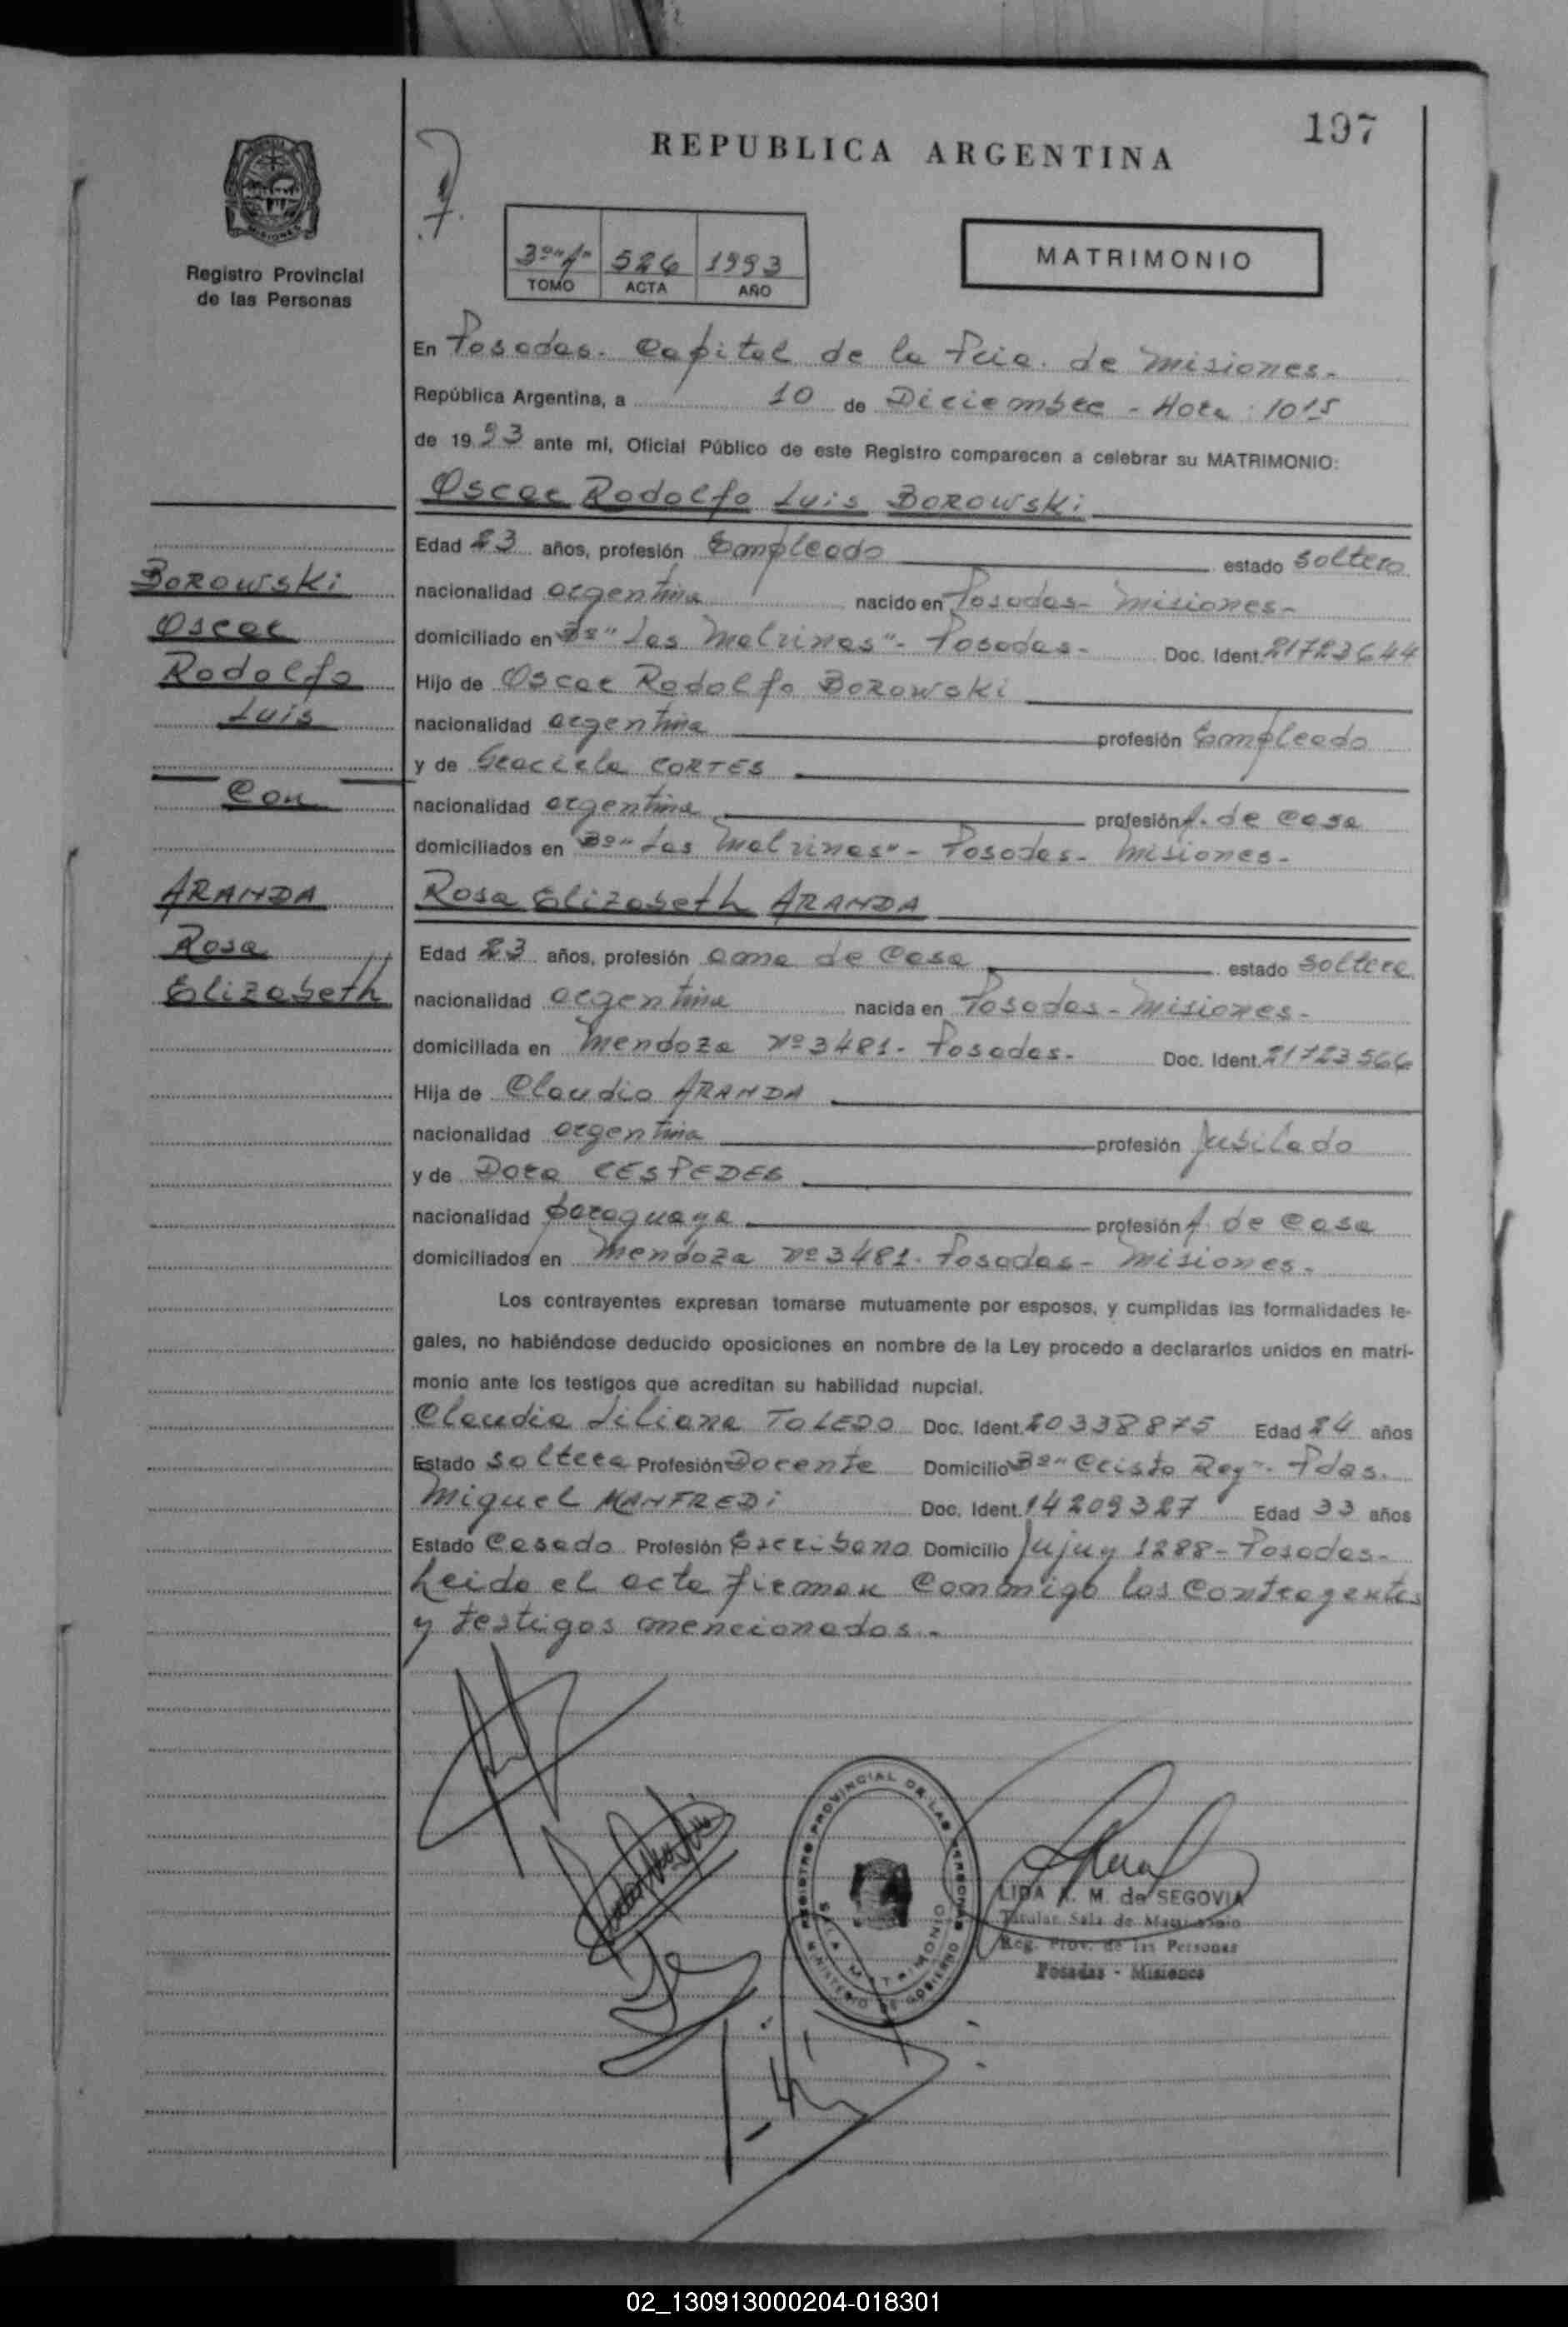 197
REPUBLICA ARGENTINA
Registro Provincial
de las Personas
3º "A" 526 1993
TOMO ACTA AÑO
MATRIMONIO
En Posadas. Capital de la Pcia. de Misiones.
República Argentina, a 10 de Diciembre - Hora: 1015
de 1993 ante mi, Oficial Público de este Registro comparecen a celebrar su MATRIMONIO:
Oscar Rodolfo Luis BOROWSKi
Edad 23 años, profesión Empleado estado soltero
nacionalidad argentina nacido en Posadas - Misiones -
domiciliado en Bº "Las Malvinas" - Posadas - Doc. Ident. 21723644
Hijo de Oscar Rodolfo BOROWSKi
nacionalidad argentina profesión Empleado
y de Graciela CORTES
nacionalidad argentina profesión A. de casa
domiciliados en Bº "Las Malvinas" - Posadas - Misiones -
BOROWSKi
Oscar
Rodolfo
Luis
Con
ARANDA
Rosa
Elizabeth
Rosa Elizabeth ARANDA
Edad 23 años, profesión ama de casa estado soltera
nacionalidad argentina nacida en Posadas - Misiones -
domiciliada en Mendoza Nº 3481 - Posadas - Doc. Ident. 21723566
Hija de Claudio ARANDA
nacionalidad argentina profesión Jubilado
y de Dora CESPEDES
nacionalidad paraguaya profesión A. de casa
domiciliados en Mendoza Nº 3481. Posadas - Misiones.
Los contrayentes expresan tomarse mutuamente por esposos, y cumplidas las formalidades le-
gales, no habiéndose deducido oposiciones en nombre de la Ley procedo a declararlos unidos en matri-
monio ante los testigos que acreditan su habilidad nupcial.
Claudia Liliana TOLEDO Doc. Ident. 20338875 Edad 24 años
Estado soltera Profesión Docente Domicilio Bº "Cristo Rey" - Pdas.
Miguel MANFREDi Doc. Ident. 14209327 Edad 33 años
Estado Casado Profesión Escribano Domicilio Jujuy 1288 - Posadas -
Leida el acta firman conmigo los contrayentes
y testigos mencionados.
REGISTRO PROVINCIAL DE LAS PERSONAS
SALA MATRIMONIO
MINISTERIO DE GOBIERNO
LIDA A. M. de SEGOVIA
Titular Sala de Matrimonio
Reg. Prov. de las Personas
Posadas - Misiones
02_130913000204-018301